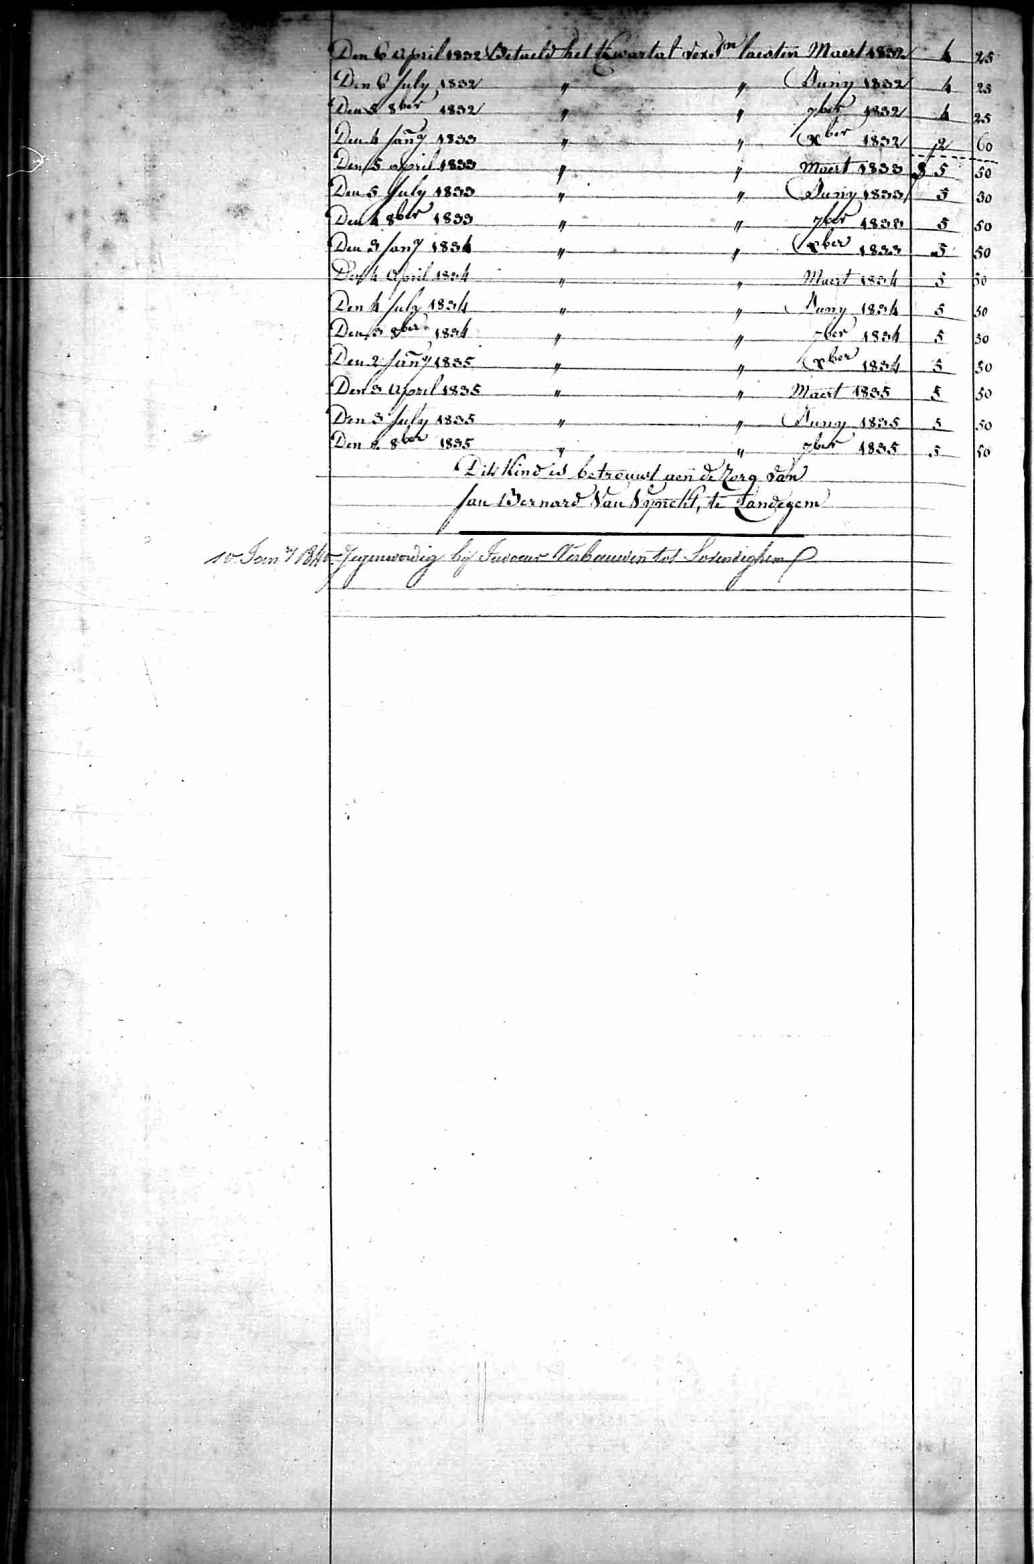 Den 6 April 1832 Betaeld het Kwartal vers^n laesten Maert 1832 4 25
Den 6 July 1832 " " Juny 1832 4 25
Den 5 8ber 1832 " " 7ber 1832 4 25
Den 4 Jany 1833 " " Xber 1832 2 60
Den 5 april 1833 " " Maert 1833 5 50
Den 5 July 1833 " " Juny 1833 5 50
Den 4 8ber 1833 " " 7ber 1833 5 50
Den 3 Jany 1834 " " Xber 1833 5 50
Den 4 April 1834 " " Maert 1834 5 50
Den 4 July 1834 " " Juny 1834 5 50
Den 3 8ber 1834 " " 7ber 1834 5 50
Den 2 Jany 1835 " " Xber 1834 5 50
Den 3 April 1835 " " Maert 1835 5 50
Den 3 July 1835 " " Juny 1835 5 50
Den 2 8ber 1835 " " 7ber 1835 5 50
Dit Kind is betrouwt aen de Zorg van
Jan Bernard Van Vynckt, te Landegem
10 Jany 1840 Tegenwordig bij Verbauwen tot Lovendighem